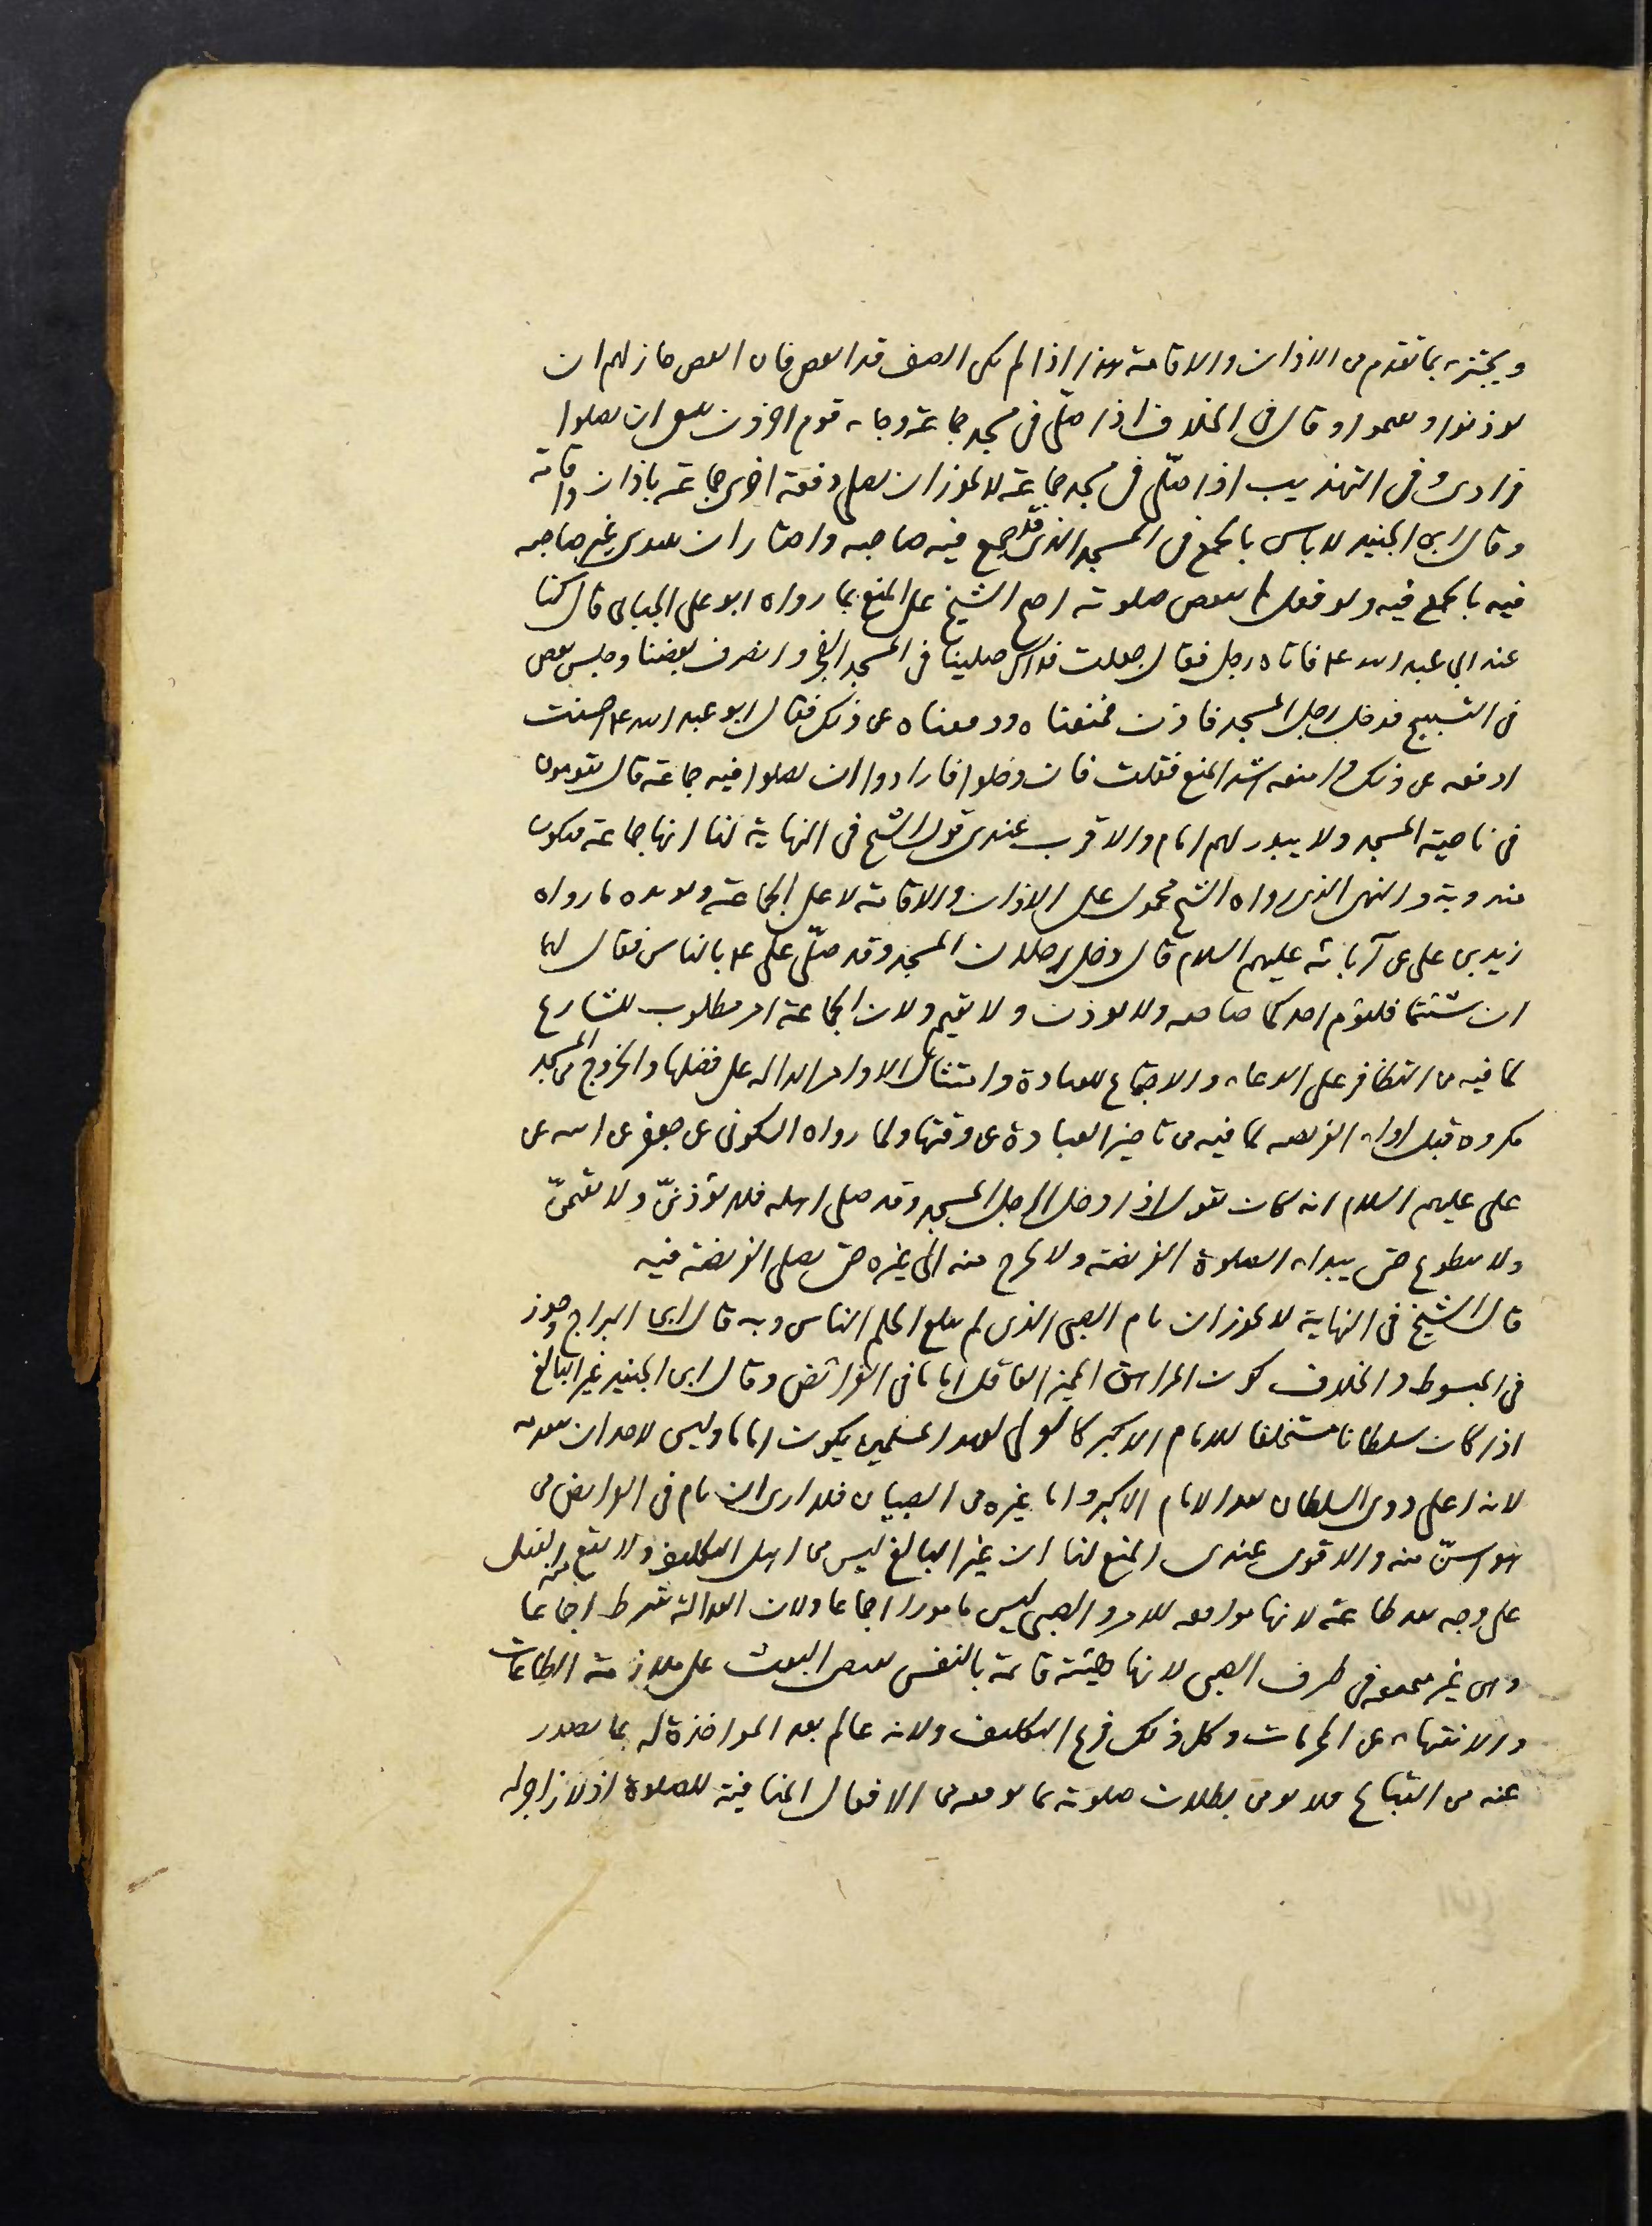 ويجتزء بما تقدم من الاذان والاقامة هذا اذا لم يكن الصف قد انفض فان انفض جاز لهم ان
يوذنوا ويقيموا وقال في الخلاف اذا صلى في مسجد جماعة وجاء قوم اخرون ينبغي ان يصلوا
فرادى وفي التهذيب اذا صلّى في مسجد جماعة لا يجوز ان يصلي دفعة اخرى جماعة باذان واقامة
وقال ابن الجنيد لا باس بالجمع في المسجد الذي قد جمع فيه صاحبه واختار ان يبتدى غير صاحبه
فيه بالجمع فيه ولو فعل لم ينقض صلوته احتج الشيخ على المنع بما رواه ابو على الجبائي قال كنا
عند ابي عبد الله ع فاتاه رجل فقال جعلت فداك صلينا في المسجد الفجر وانصرف بعضنا وجلس بعض
في التسبيح فدخل رجل المسجد فاذن فمنعناه ودفعناه عن ذلك فقال ابو عبد الله ع احسنت
ادفعه عن ذلك وامنعه اشد المنع فقلت فان دخلوا فارادوا ان يصلوا فيه جماعة قال يقومون
في ناحية المسجد ولا يبدر لهم امام والاقرب عندي قول الشيخ في النهاية لنا انها جماعة فيكون
مندوبة والنهى الذي رواه الشيخ محمول على الاذان والاقامة لا على الجماعة ويويده ما رواه
زيد بن على عن آبائه عليهم السلام قال دخل رجلان المسجد وقد صلّى على ع بالناس فقال لهما
ان شئتما فليؤم احدكما صاحبه ولا يوذن ولا يقيم ولان الجماعة امر مطلوب للشارع
لما فيه من التظافر على الدعاء والاجتماع للعبادة وامتثال الاوامر الدالة على فضلها والخروج من المسجد
مكروه قبل اداء الفريضة لما فيه من تاخير العبادة عن وقتها ولما رواه السكوني عن جعفر عن ابيه عن
على عليهم السلام انه كان يقول اذا دخل الرجل المسجد وقد صلى اهله فلا يؤذننّ ولا يقيمنّ
ولا يتطوع حتى يبداء الصلوة الفريضة ولا يخرج منه الى غيره حتى يصلى الفريضة فيه
قال الشيخ في النهاية لا يجوز ان يام الصبى الذى لم يبلغ الحلم الناس وبه قال ابن البراج وجوز
في المبسوط والخلاف كون المراهق المميز العاقل اماما في الفرائض وقال ابن الجنيد غير البالغ
اذا كان سلطانا مستخلفا للامام الاكبر كالولى لعهد المسلمين يكون اماما وليس لاحد ان يتقدمه
لانه اعلى ذوى السلطان بعد الامام الاكبر واما غيره من الصبيان فلا ارى ان يام في الفرايض من
هو اسنّ منه والاقوى عندى المنع لنا ان غير البالغ ليس من اهل التكليف ولا يقع منه الفعل
على وجه يعد طاعة لانها موافقة للامر والصبى ليس مامورا اجماعا ولان العدالة شرط اجماعا
وهى غير متحققة في طرف الصبى لانها هيئة قائمة بالنفس يقتضى البعث على ملازمة الطاعات
والانتهاء عن المحرمات وكل ذلك فرع التكليف ولانه عالم بعد المواخذة له بما يصدر
عنه من القبائح فلا يومن بطلان صلوته بما يوقعه من الافعال المنافية للصلوة اذ لا زاجر له